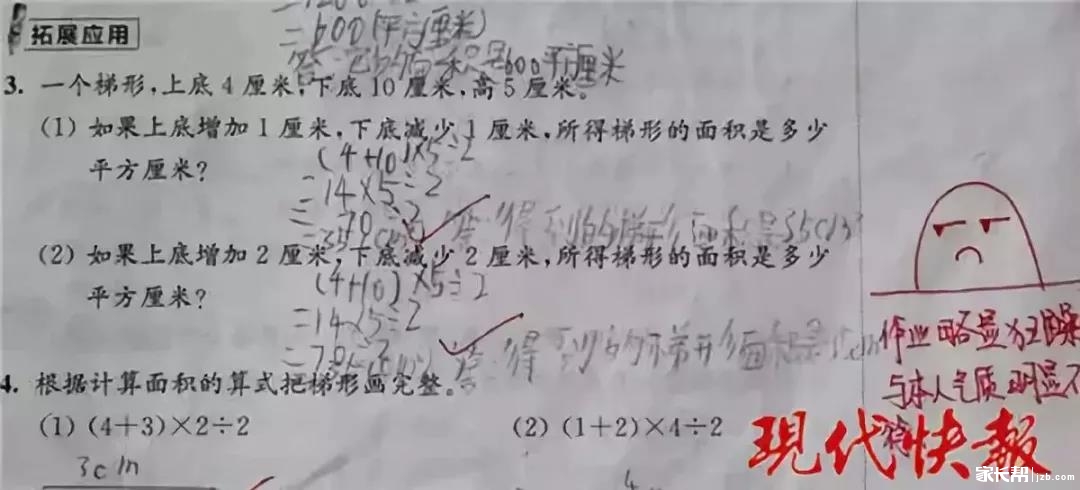 =600(平方厘米)
拓展应用
答:它的面积是600平方厘米
3. 一个梯形,上底 4 厘米,下底 10 厘米,高 5 厘米。
(1) 如果上底增加 1 厘米,下底减少 1 厘米,所得梯形的面积是多少
平方厘米?
(4+10)×5÷2
=14×5÷2
=70÷2
答:得到的梯形面积是35cm²
(2) 如果上底增加 2 厘米,下底减少 2 厘米,所得梯形的面积是多少
平方厘米?
(4+10)×5÷2
=14×5÷2
=70÷2
答:得到的梯形面积是
作业略显狂躁
与本人气质明显不
符
4. 根据计算面积的算式把梯形画完整。
(1) (4+3)×2÷2
(2) (1+2)×4÷2
3cm
4
現代快報
家长帮 jzb.com